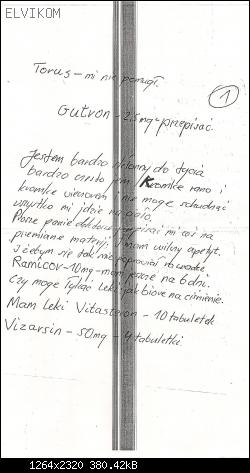 ELVIKOM
Torus – mi nie pomógł.
1
Gutron – 2,5 mg – przepisać.
Jestem bardzo skłonny do tycia
bardzo mało jem, Kromkę rano i
kromkę wieczorem i nie mogę schudnąć
wszytko mi idzie na ciało.
Panie doktorze przepisać mi coś na
przemianę materyi, i mam wilczy apetyt.
i żebym się tak nie
Ramicor – 10 mg – mam jeszcze na 6 dni.
czy mogę łykać Leki jak biorę na ciśnienie.
Mam Leki Vitasteron – 10 tabuletek
Vizarsin – 50 mg – 4 tabuletki
1264x2320 380.42kB